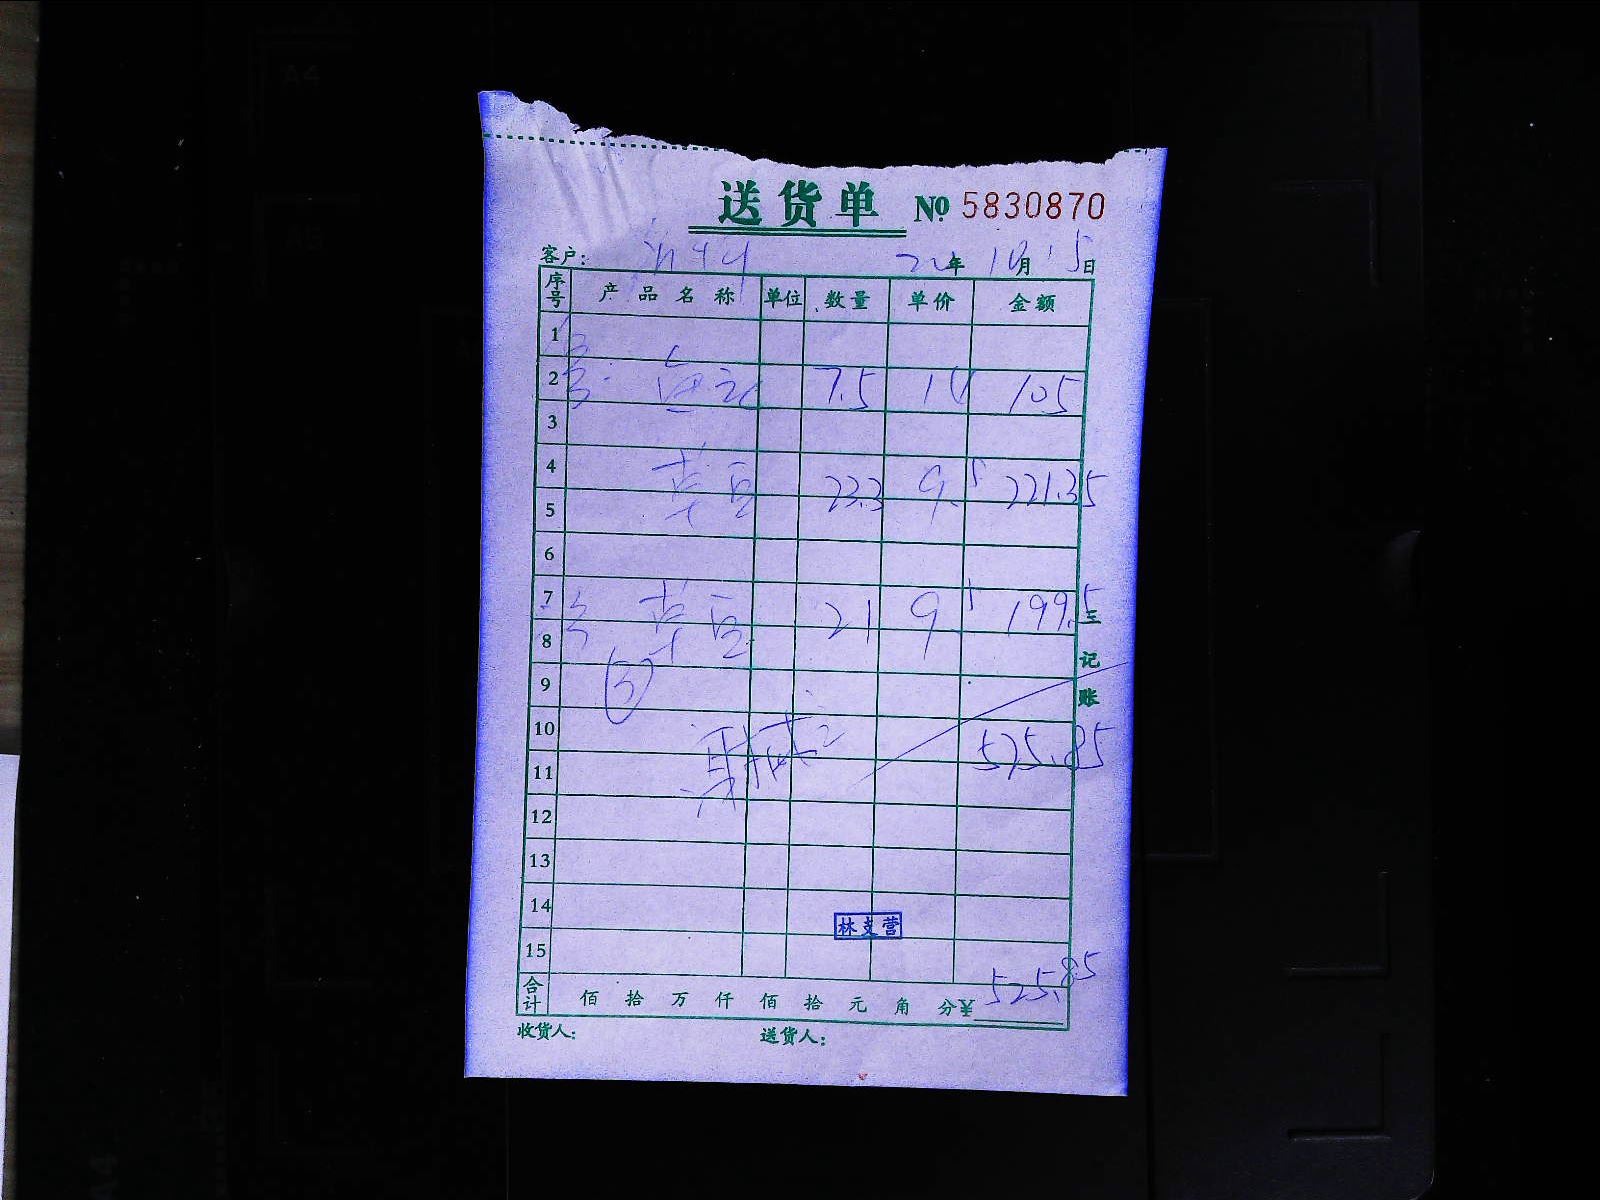 送货单 № 5830870
客户: 22年10月15日
序号 产品名称 单位 数量 单价 金额
1
2 7.5 14 105
3
4 荜豆 23.3 9.5 221.35
5
6
7 荜豆 21 9.5 199.5
8
9 ③
10 525.85
11
12
13
14 林支营
15
合计 佰 拾 万 仟 佰 拾 元 角 分¥ 525.85
收货人: 送货人:
三记账
A4
A5